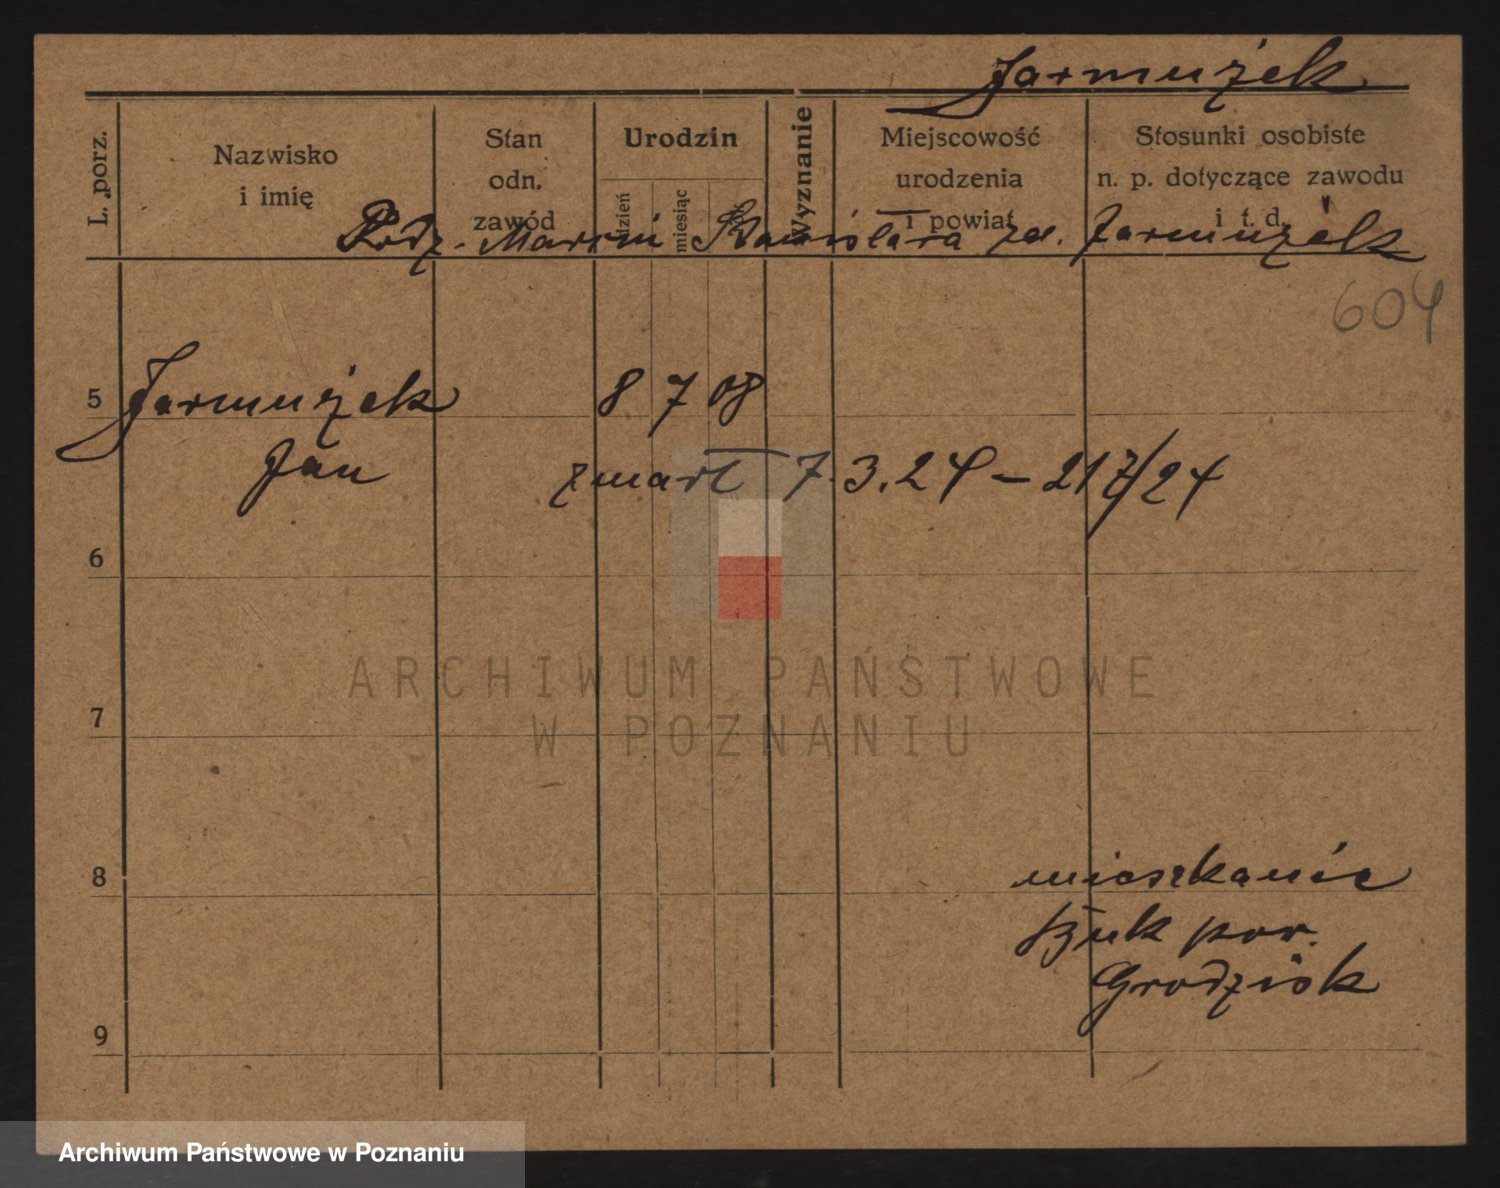 Jarmużek
L. porz.
Nazwisko i imię
Stan odn. zawód
Urodzin
dzień
miesiąc
Wyznanie
Miejscowość urodzenia i powiat
Stosunki osobiste n. p. dotyczące zawodu i t. d.
Rodz. Marcin Stanisława zd. Jarmużek
604
5 Jarmużek 8 7 08
Jan zmarł 7.3.24 – 21 7/24
6
ARCHIWUM PAŃSTWOWE
W POZNANIU
7
8
mieszkanie
Buk pow.
Grodzisk
9
Archiwum Państwowe w Poznaniu